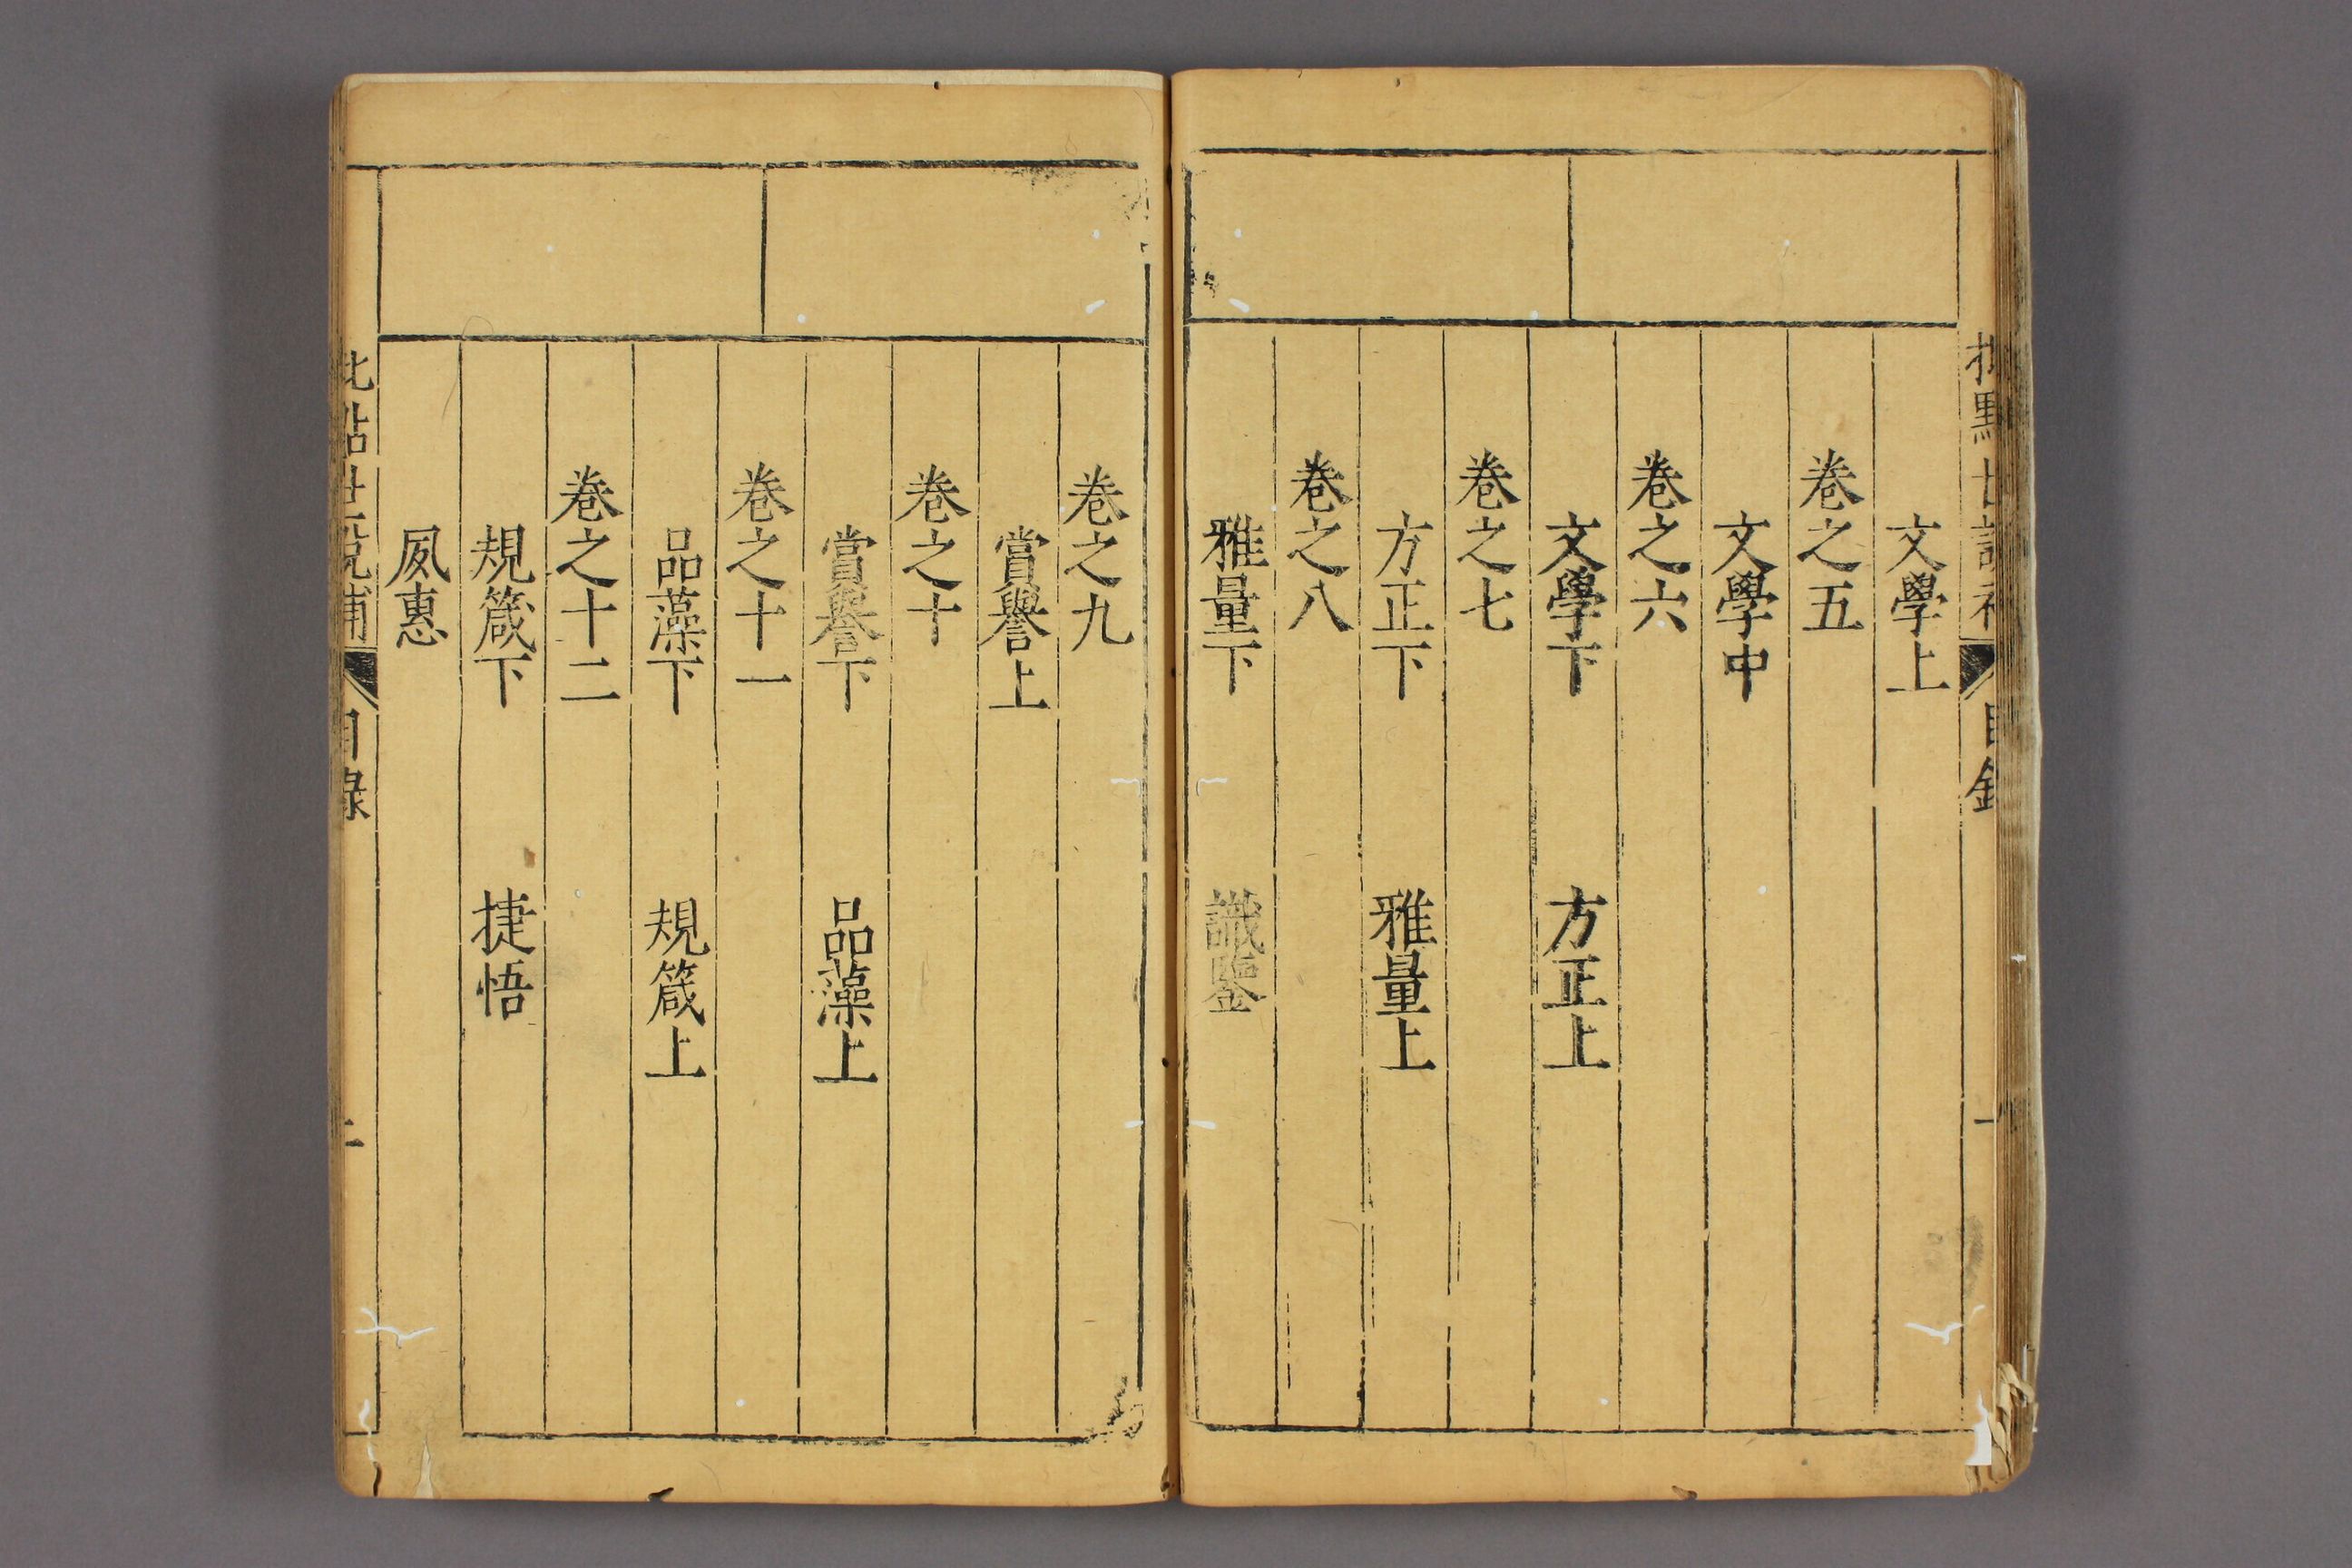 批點世說補 目錄 一
文學上
卷之五
文學中
卷之六
文學下 方正上
卷之七
方正下 雅量上
卷之八
雅量下 識鑒
卷之九
賞譽上
卷之十
賞譽下 品藻上
卷之十一
品藻下 規箴上
卷之十二
規箴下 捷悟
夙惠
批點世說補 目錄 二